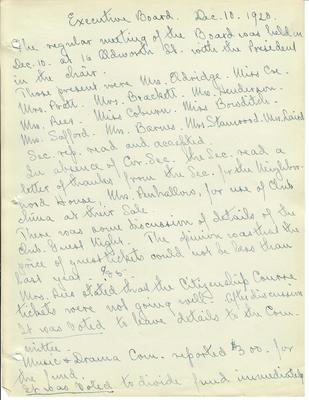 Executive Board. Dec. 10. 1920.
The regular meeting of the Board was held on
Dec. 10. at 16 Aldworth St. with the President
in the chair.
Those present were Mrs. Eldredge. Miss Coe.
Mrs. Pratt. Mrs. Brackett. Mrs. Henderson.
Mrs. Rees. Miss Coburn. Miss Bowditch.
Mrs. Safford. Mrs. Barnes. Mrs. Stanwood. Mrs.
Sec. rep. read and accepted.
In absence of Cor. Sec. the Sec. read a
letter of thanks from the Sec. of the Neighbor-
hood House, Mrs. for use of Club
china at their Sale
There was some discussion of details of the
Club Guest Night. The opinion was that the
price of guest tickets could not be less than
last year - 85¢.
Mrs. Rees stated that the Citizenship Course
tickets were not going well. After discussion
It was Voted to leave details to the Com-
mittee.
Music & Drama Com. reported $300. for
the fund.
It was Voted to divide fund immediately